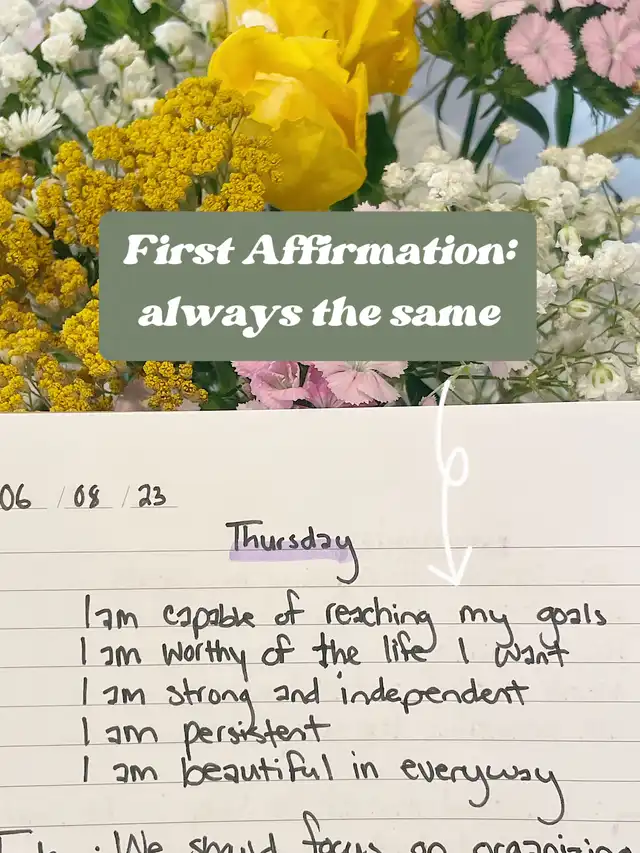 First Affirmation:
always the same
06 / 08 / 23
Thursday
I am capable of reaching my goals
I am worthy of the life I want
I am strong and independent
I am persistent
I am beautiful in everyway
: We should focus on organizing